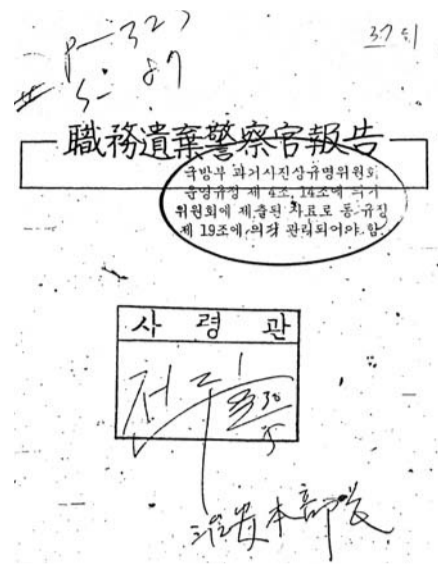 P-327
S-87
37쪽
職務遺棄警察官報告
국방부 과거사진상규명위원회
운영규정 제 4조, 14조에 의거
위원회에 제출된 자료로 동 규정
제 19조에 의거 관리되어야 함
사 령 관
本部長